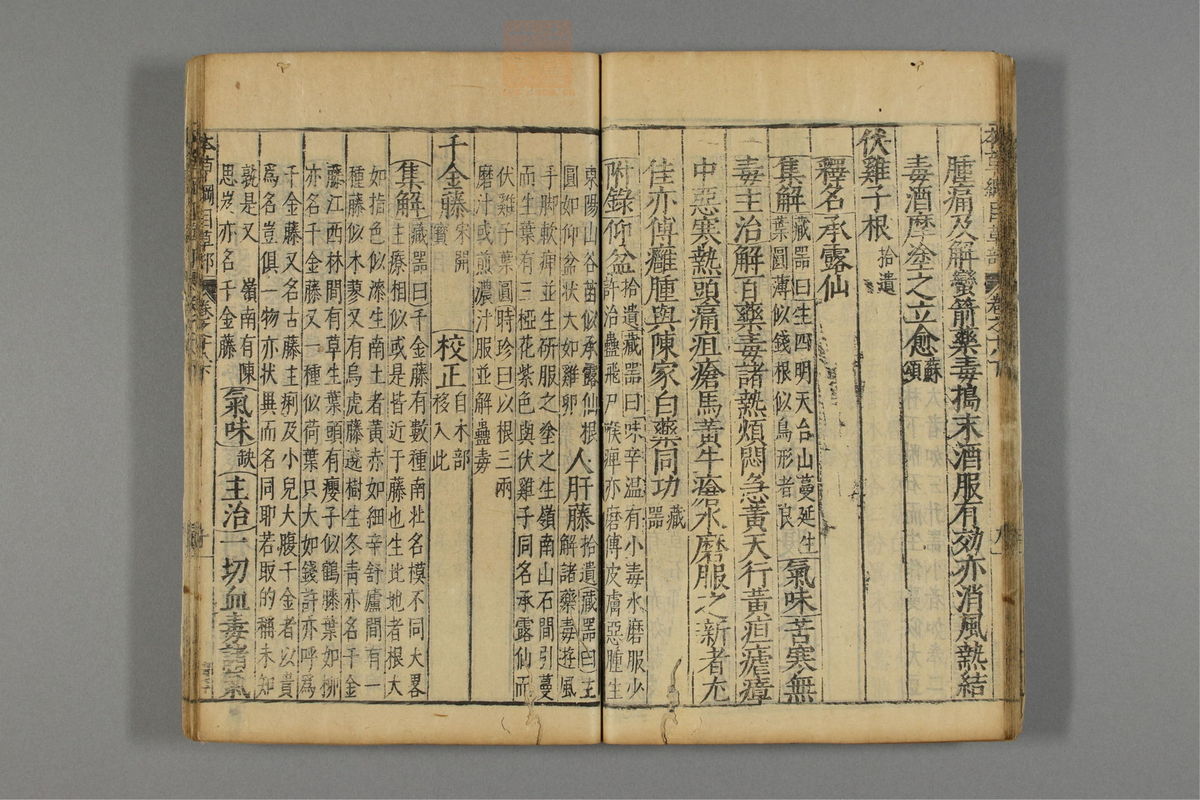 腫痛及解蠻箭藥毒搗末酒服有効亦消風熱結
毒酒摩塗之立愈蘇頌
伏雞子根拾遺
釋名承露仙
集解藏器曰生四明天台山蔓延生
葉圓薄似錢根似鳥形者良氣味苦寒無
毒主治解百藥毒諸熱煩悶急黃天行黃疸瘧瘴
中惡寒熱頭痛疽瘡馬黃牛疫水磨服之新者尤
佳亦傅癰腫與陳家白藥同功藏器
附錄仰盆拾遺藏器曰味辛温有小毒水磨服少
許治蠱飛尸喉痺亦磨傅皮膚惡腫生
東陽山谷苗似承露仙根
圓如仰盆狀大如雞卵人肝藤拾遺藏器曰主
解諸藥毒遊風
手脚軟痺並生研服之塗之生嶺南山石間引蔓
而生葉有三椏花紫色與伏雞子同名承露仙而
伏雞子葉圓時珍曰以根三兩
磨汁或煎濃汁服並解蠱毒
千金藤宋開寶校正自木部移入此
集解藏器曰千金藤有數種南北名模不同大畧
主療相似或是皆近于藤也生北地者根大
如指色似漆生南土者黃赤如細辛舒廬間有一
種藤似木蓼又有烏虎藤遶樹生冬青亦名千金
藤江西林間有草生葉頭有癭子似鶴膝葉如柳
亦名千金藤又一種似荷葉只大如錢許亦呼爲
千金藤又名古藤主痢及小兒大腹千金者以貴
爲名豈俱一物亦狀異而名同耶若取的稱未知
孰是又嶺南有陳
思岌亦名千金藤氣味缺主治一切血毒諸氣